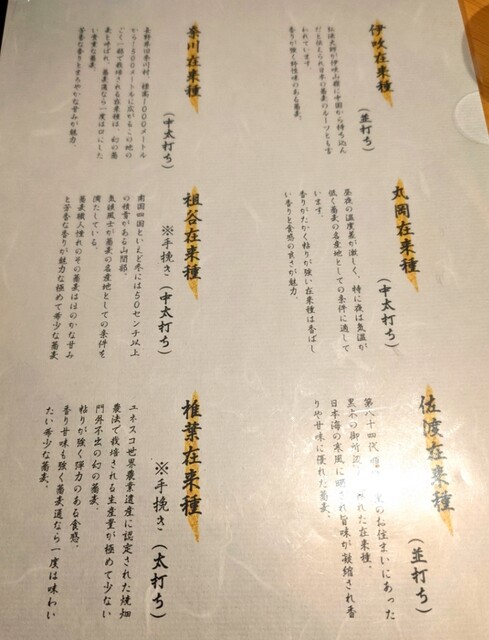 伊吹在来種
(並打ち)
弘法大師が伊吹山麓に中国から持ち込ん
だと伝えられ日本の蕎麦のルーツとも言
われています。
香りが強く野性味のある蕎麦。
奈川在来種
(中太打ち)
長野県旧奈川村、標高1000メートル
から1300メートルに広がるこの地の
ごく一部で栽培される在来種は、幻の蕎
麦と呼ばれ、蕎麦通なら一度は口にした
い貴重な蕎麦。
芳香な香りとまろやかな甘みが魅力。
丸岡在来種
(中太打ち)
昼夜の温度差が激しく、特に夜は気温が
低く蕎麦の名産地としての条件に適して
います。
香りがたかく粘りが強い在来種は香ばし
い香りと食感の良さが魅力。
祖谷在来種
※手挽き(中太打ち)
南国四国といえど冬には50センチ以上
の積雪がある山間部。
気候風土が蕎麦の名産地としての条件を
満たしている。
蕎麦職人憧れのその蕎麦はほのかな甘み
と芳香な香りが魅力な極めて希少な蕎麦
佐渡在来種
(並打ち)
第八十四代 のお住まいにあった
黒木の御所 れた在来種。
日本海の寒風に晒され旨味が凝縮され香
りや甘味に優れた蕎麦。
椎葉在来種
※手挽き(太打ち)
ユネスコ世界農業遺産に認定された焼畑
農法で栽培される生産量が極めて少ない
門外不出の幻の蕎麦。
粘りが強く弾力のある食感。
香り甘味も強く蕎麦通なら一度は味わい
たい希少な蕎麦。